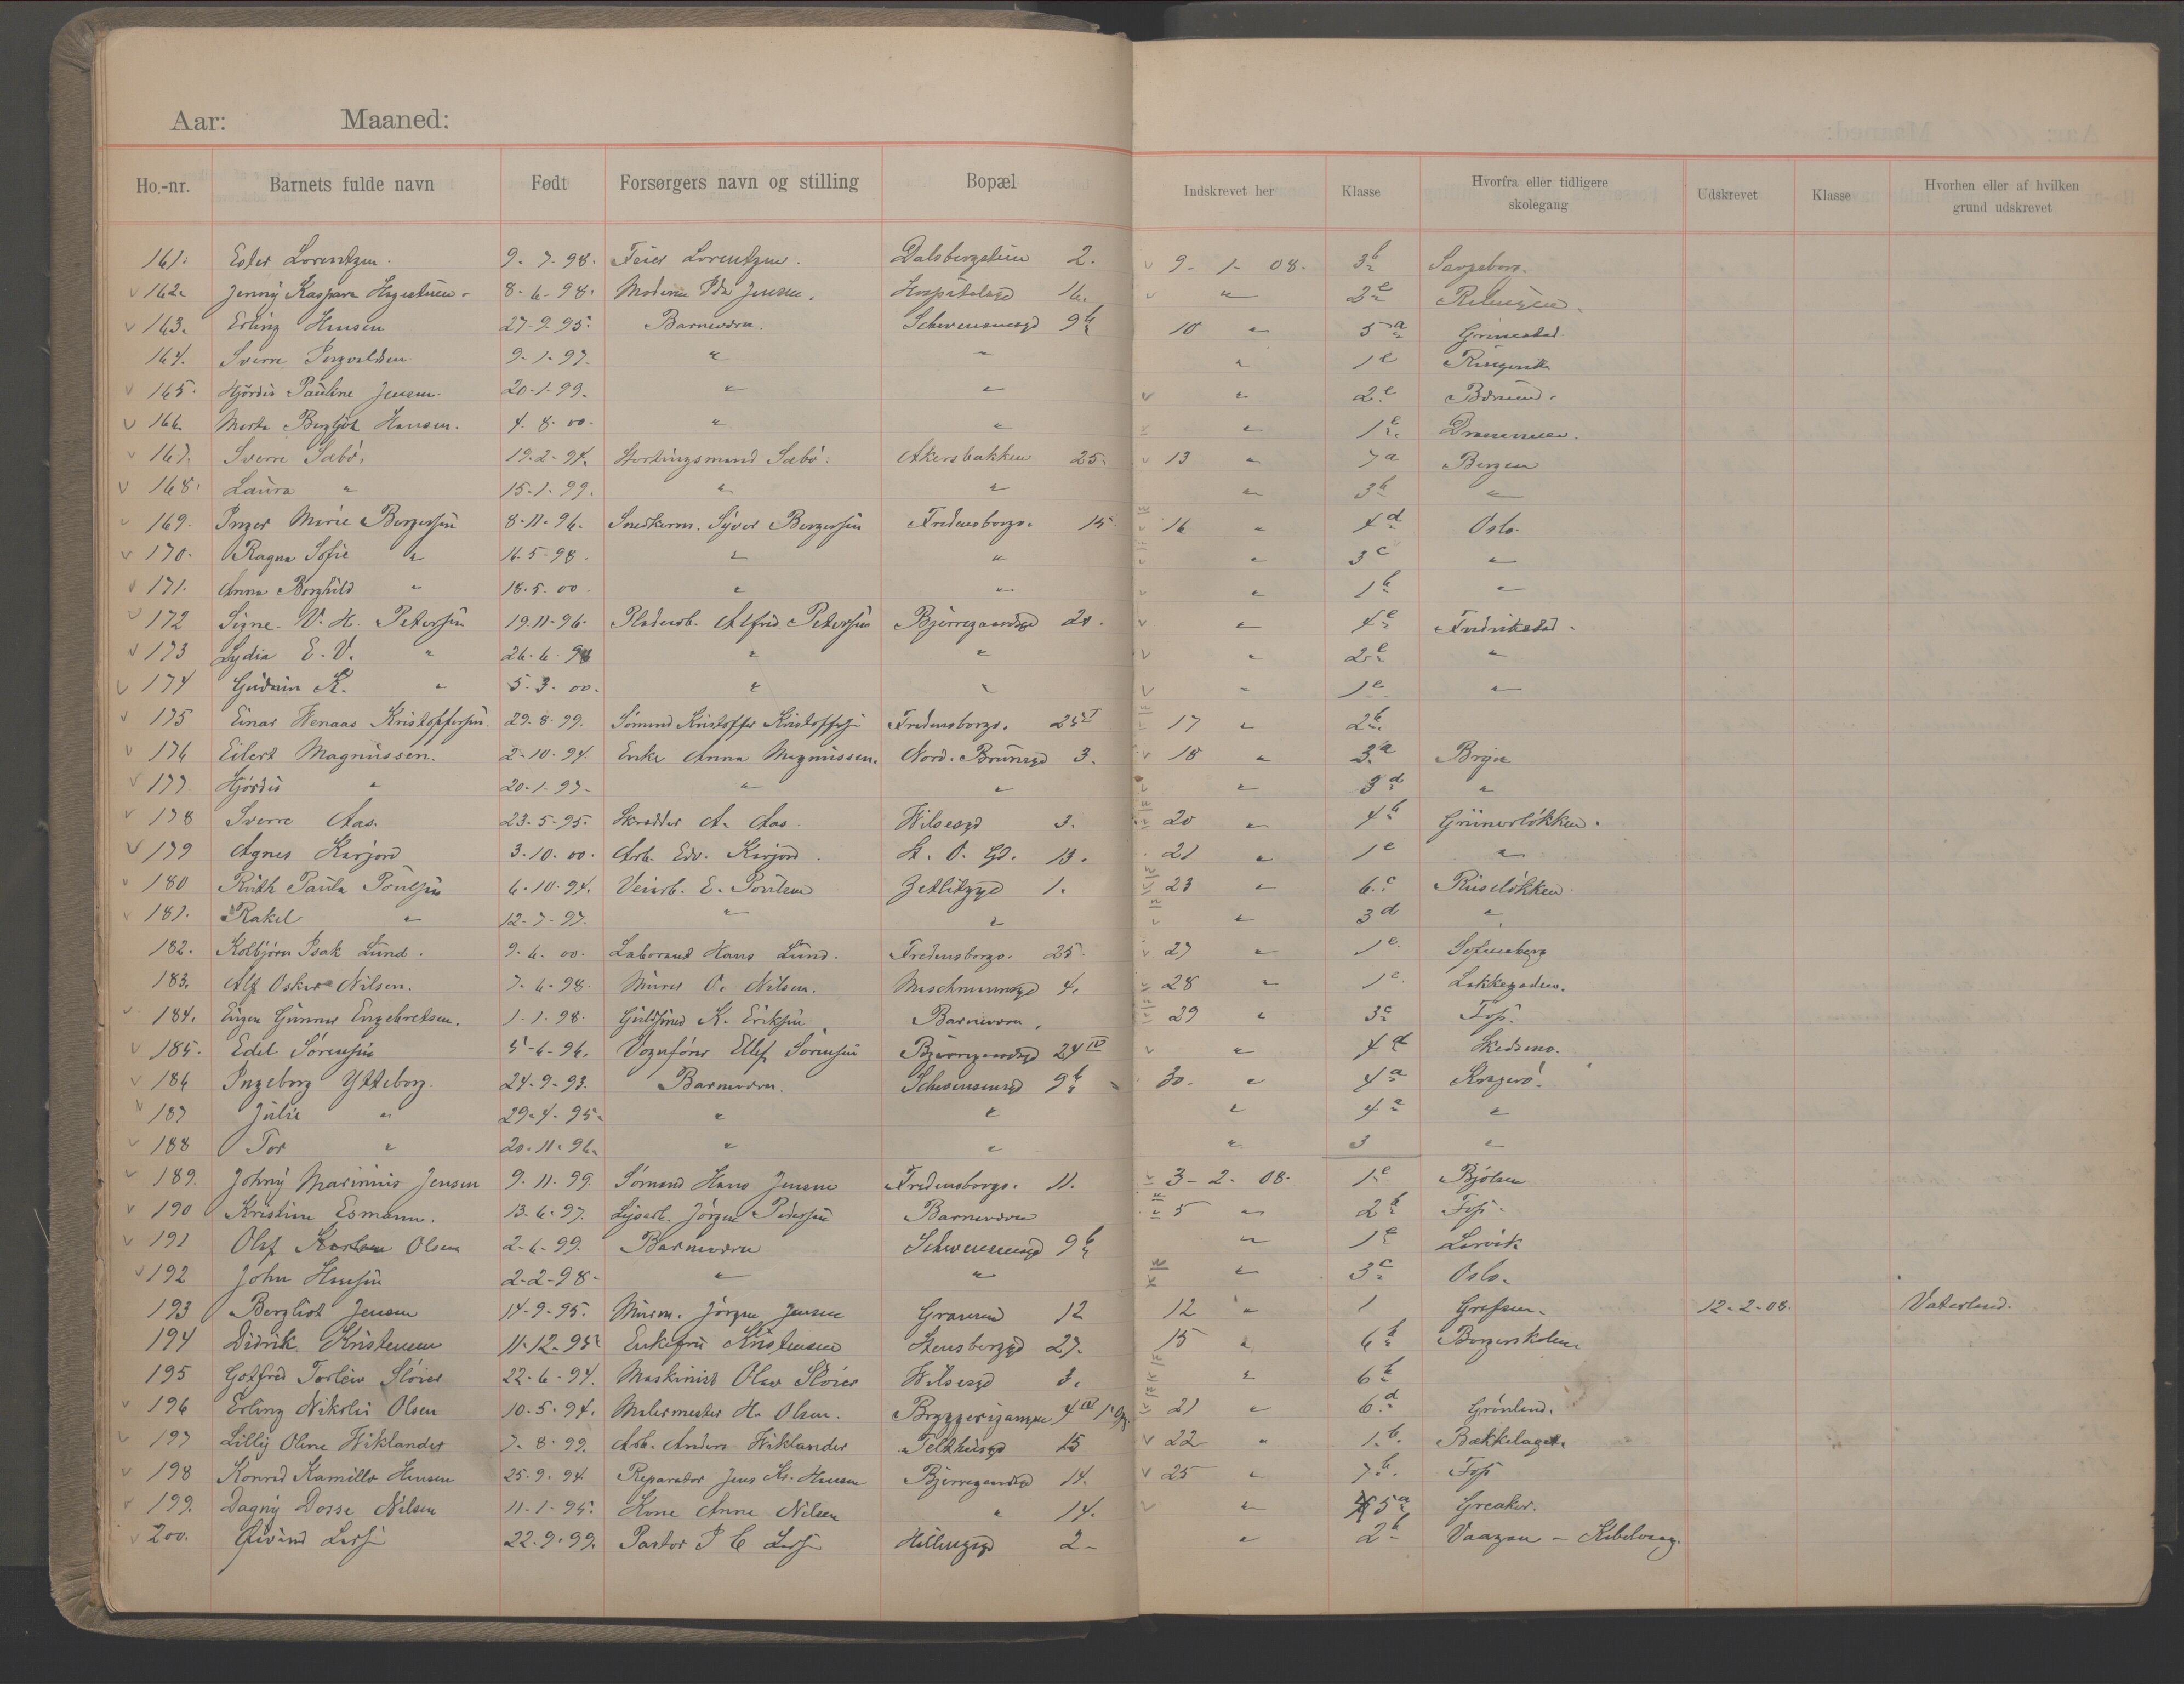 Aar: Maaned:
Ho.-nr. Barnets fulde navn Født Forsørgers navn og stilling Bopæl Indskrevet her Klasse Hvorfra eller tidligere skolegang Udskrevet Klasse Hvorhen eller af hvilken grund udskrevet
161. Ester Lorentzen. 9-7-98. Feier Lorentzen. Dalsbergstien 2. v 9-1-08. 3b Sarpsborg.
v 162. Jenny Kaspara 8-6-98. Moderen Ida Jensen. Hospitalsgd 16. v " 2e
v 163. Erling Hansen 27-9-95. Barnevern. Schwensensgd 9b 10 " 5a Grimstad.
164. Sverre Ingvaldsen. 9-1-97. " " " 1e
v 165. Hjördis Pauline Jensen. 20-1-99. " " v " 2e
v 166. Marta Bergljot Hansen. 4-8-00. " " " 1e Drammen.
v 167. Sverre Sæbö. 19-2-94. Stortingsmand Sæbö. Akersbakken 25. v 13 " 7a Bergen
v 168. Laura " 15-1-99. " " " 3b "
v 169. Inger Marie Bergersen 8-11-96. Snedkerm. Syver Bergersen Fredensborgv. 15. 16 " 4d Oslo.
v 170. Ragna Sofie " 16-5-98. " " v " 3c "
v 171. Anna Borghild " 18-5-00. " " v " 1b "
v 172 Signe V. H. Petersen 19-11-96. Pladearb. Alfred Petersen Bjerregaardsgd 20. v " 4e Fredrikstad.
v 173 Lydia E. V. " 26-6-98 " " v " 2e "
v 174 Gudrun K. " 5-3-00. " " v " 1e "
v 175 Einar Henaas Kristoffersen. 29-8-99. Sömand Kristoffer Kristoffersen Fredensborgv. 25 I 17 " 2b
v 176 Eilert Magnussen. 2-10-94. Enke Anna Magnussen. Nord. Brungd 3. v 18 " 3a
v 177. Hjördis " 20-1-97. " " " 3d "
v 178 Sverre Aas. 23-5-95. Skrædder A. Aas. Wilsesgd 3. 20 " 4b Grünerlökken.
v 179 Agnes Karjord 3-10-00. Arb. Edv. Karjord. St. O. Gd. 13. 21 " 1e "
v 180 Ruth Paula Poulsen 6-10-94. Veiarb. E. Poulsen Zetlitzgd 1. 23 " 6c Ruselökken.
v 181. Rakel " 12-7-97. " " " 3d "
182. Kolbjörn Isak Lund. 9-6-00. Laborant Hans Lund. Fredensborgv. 25. v 27 " 1e Sofienberg
183. Alf Oskar Nilsen. 7-6-98 Murer O. Nilsen. Maschmannsgd 4. 28 " 1c Lakkegaden.
184. Eugen Gunnar Engebretsen. 1-1-98. Guldsmed K. Eriksen Barnevern. 29 " 3c Fos.
v 185. Edel Sörensen 5-6-96. Vognförer Ellef Sörensen Bjerregaardsgd 24 IV v " 4d Skedsmo.
v 186 Ingeborg Ytteborg. 24-9-93. Barnevern. Schwensensgd 9b 30. " 4a Kragerö.
v 187 Julie " 29-4-95. " " " 4a "
v 188 Tor " 20-11-96. " " " 3 "
v 189. Johny Marinius Jensen 9-11-99. Sömand Hans Jensen Fredensborgv. 11. 3-2-08. 1e Bjölsen
v 190 Kristine Esmann. 13-6-97. Jörgen Pedersen Barnevern 5 " 2b Fos.
v 191 Olaf Olsen 2-6-99. Barnevern Schwensensgd 9b " 1e Larvik
v 192 John Hansen 2-2-98. " " " 3c Oslo.
193 Bergliot Jensen 14-9-95. Murm. Jörgen Jensen Granveien 12 12 " 1 Grefsen. 12-2-08. Vaterland.
194 Didrik Kristensen 11-12-95 Enkefru Kristensen Stensberggd 27. 15 " 6b Borgerskolen
195 Gotfred Torleiv Slöier 22-6-94. Maskinist Olav Slöier Wilsesgd 3. " 6b
v 196 Erling Nikolai Olsen 10-5-94. Malermester H. Olsen. 4 21 " 6d Grönland.
v 197 Lilly Olene Wiklander 7-8-99. Arb. Anders Wiklander Telthusgd 15 v 22 " 1b. Bækkelaget.
v 198 Konrad Kamillo Hansen 25-9-94 Reparatör Jens Kr. Hansen Bjerregaardsgd 14. v 25 " 7b. Fos
v 199. Dagny Dosse Nilsen 11-1-95. Kone Anne Nilsen " 14. v " 5a Greaker.
v 200. Øivind 22-9-99. Pastor P C Hellingsgd 2 " 2b Vaagan - Kabelvaag.